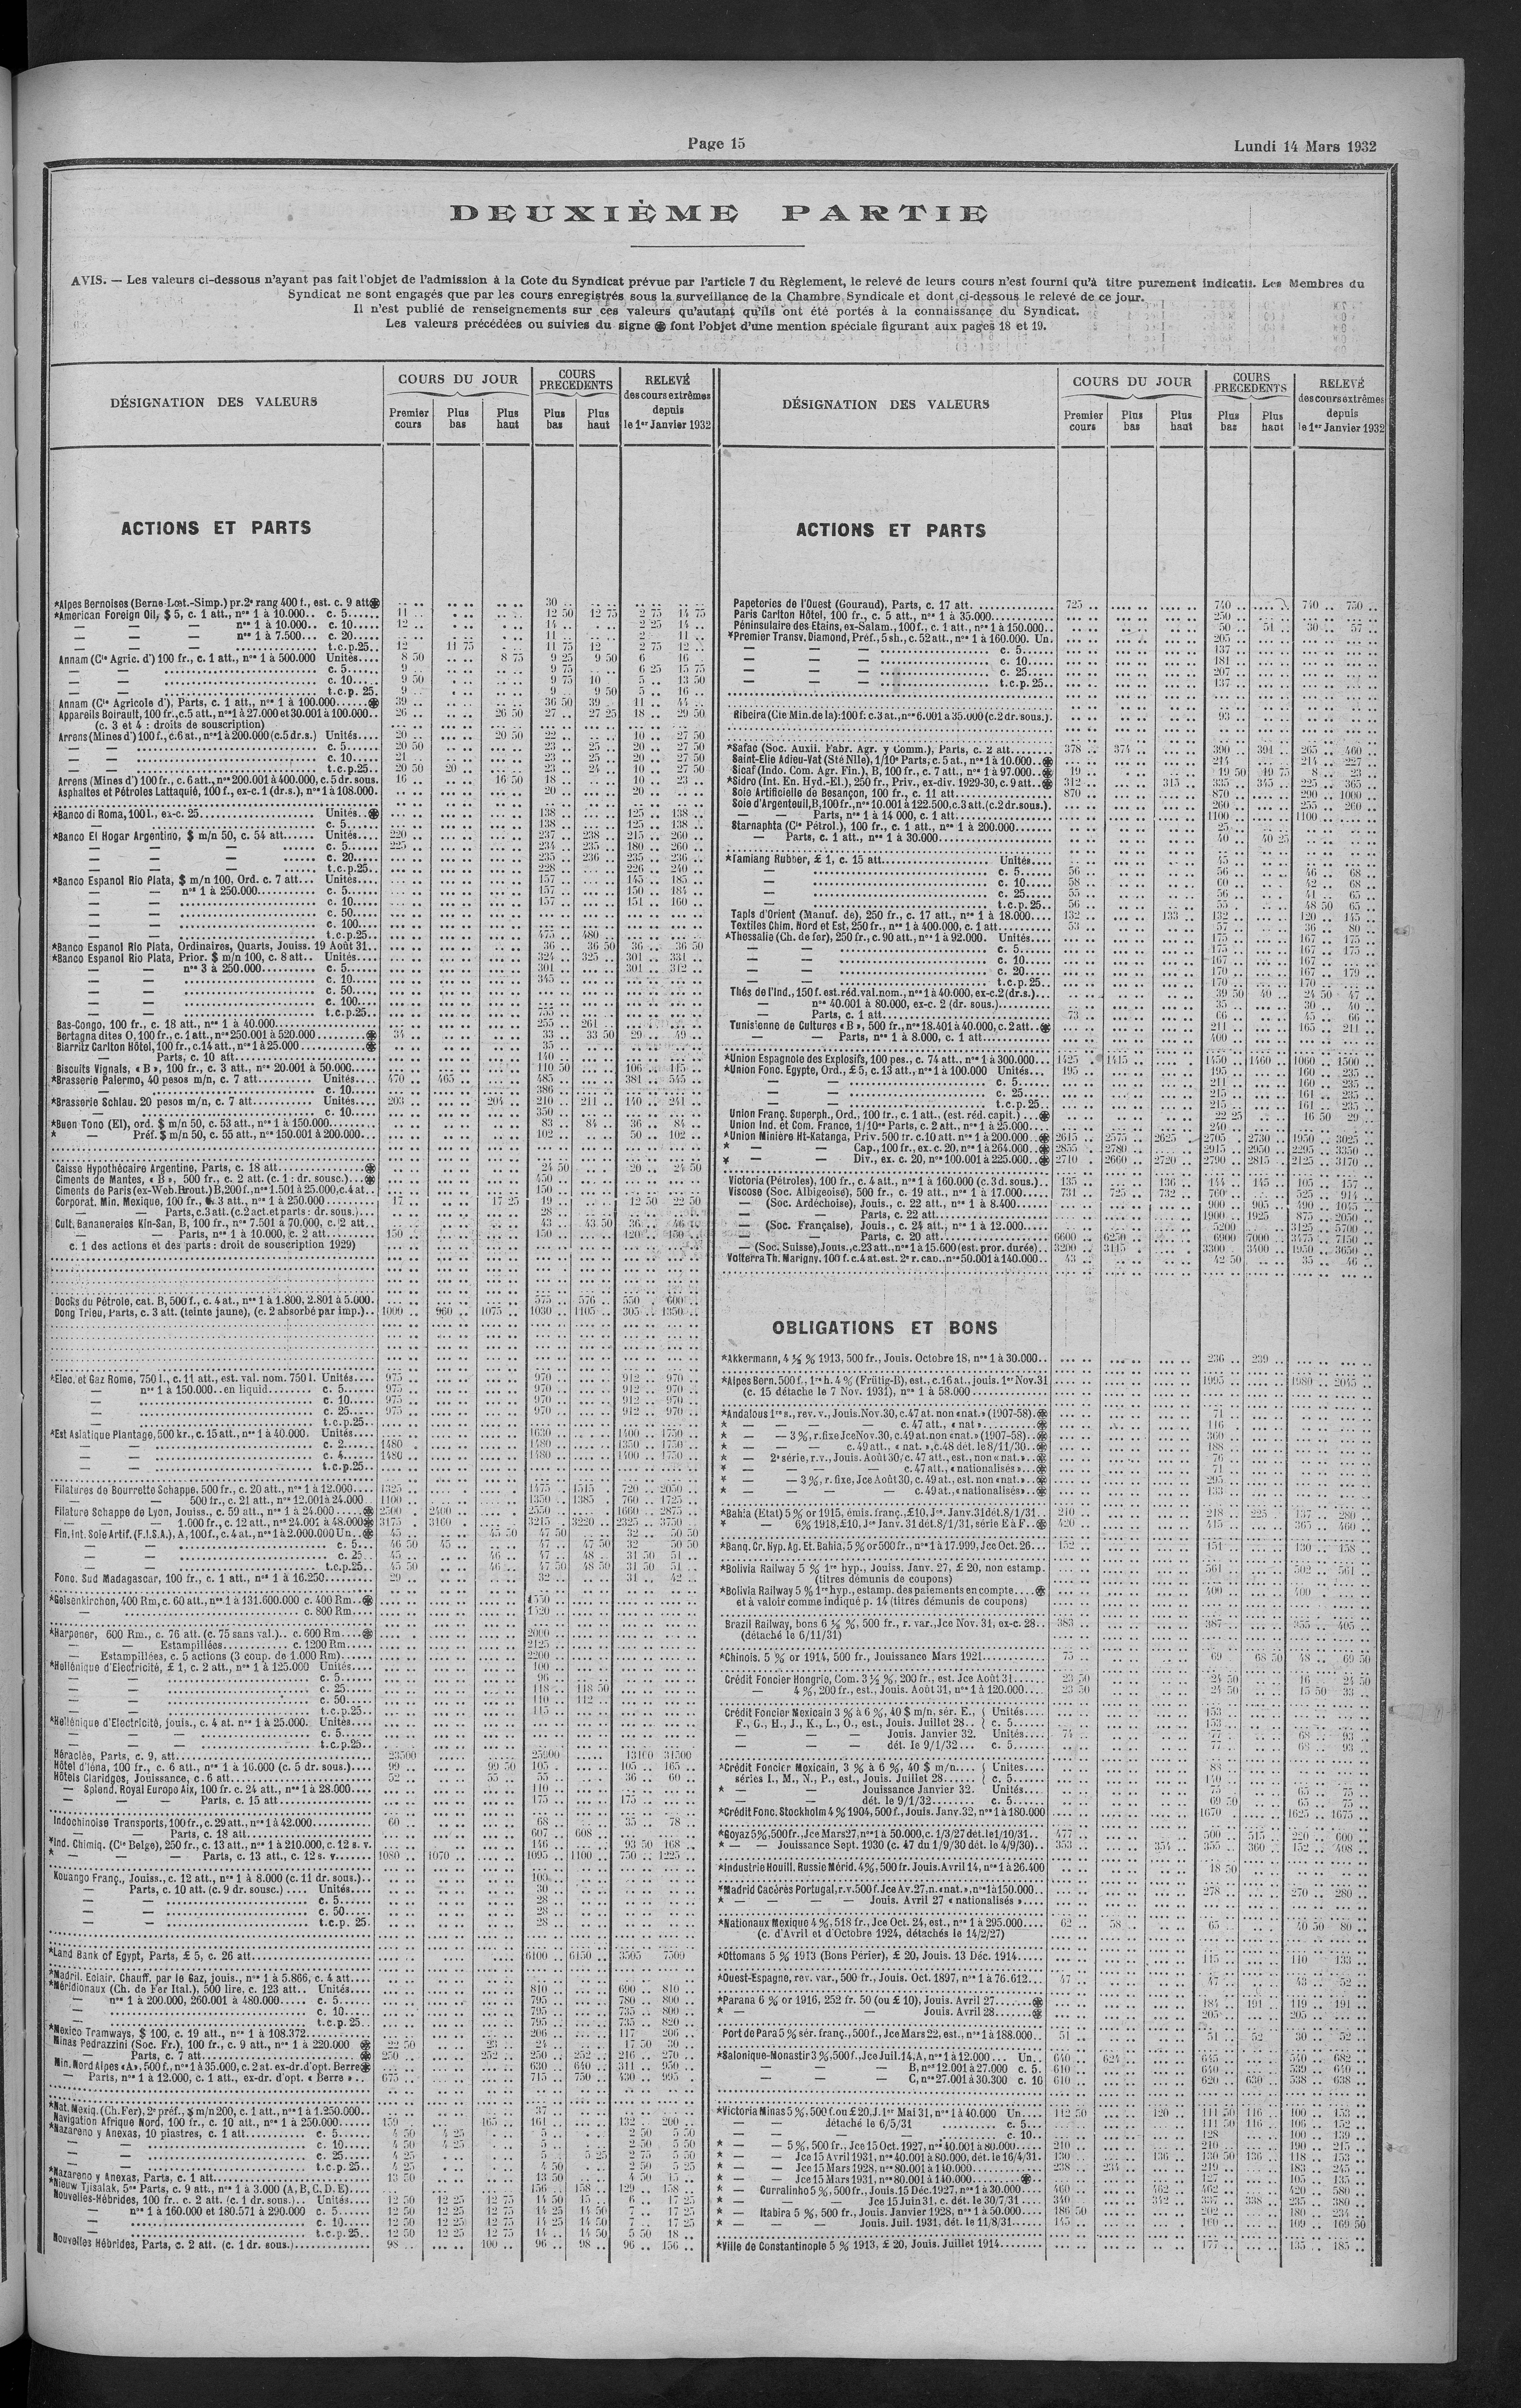 Page 15
Lundi 14 Mars 1932
DEUXIÈME PARTIE
AVIS. — Les valeurs ci-dessous n'ayant pas fait l'objet de l'admission à la Cote du Syndicat prévue par l'article 7 du Règlement, le relevé de leurs cours n'est fourni qu'à titre purement indicatif. Les Membres du
Syndicat ne sont engagés que par les cours enregistrés sous la surveillance de la Chambre Syndicale et dont ci-dessous le relevé de ce jour.
Il n'est publié de renseignements sur ces valeurs qu'autant qu'ils ont été portés à la connaissance du Syndicat.
Les valeurs précédées ou suivies du signe ֍ font l'objet d'une mention spéciale figurant aux pages 18 et 19.
DÉSIGNATION DES VALEURS
COURS DU JOUR
Premier cours
Plus bas
Plus haut
COURS PRECEDENTS
Plus bas
Plus haut
RELEVÉ des cours extrêmes depuis le 1er Janvier 1932
ACTIONS ET PARTS
*Alpes Bernoises (Berne-Lœt.-Simp.) pr. 2e rang 400 f., est. c. 9 att. 30
*American Foreign Oil, $ 5, c. 1 att., nos 1 à 10.000.. c. 5 11 12 50 12 75 2 75 14 75
— — — nos 1 à 10.000.. c. 10 12 14 2 25 14
— — — nos 1 à 7.500... c. 20 11 2 11
— — — t.c.p.25 12 11 75 11 75 12 2 75 12
Annam (Cie Agric. d') 100 fr., c. 1 att., nos 1 à 500.000 Unités 8 50 8 75 9 25 9 50 6 16
— — c. 5 9 9 75 6 25 15 75
— — c. 10 9 50 9 75 10 5 13 50
— — t.c.p. 25 9 9 9 50 5 16
Annam (Cie Agricole d'), Parts, c. 1 att., nos 1 à 100.000 39 36 50 39 11 44
Appareils Boirault, 100 fr., c. 5 att., nos 1 à 27.000 et 30.001 à 100.000 26 26 50 27 27 25 18 29 50
(c. 3 et 4 : droits de souscription)
Arrens (Mines d') 100 f., c. 6 at., nos 1 à 200.000 (c. 5 dr. s.) Unités 20 20 50 22 10 27 50
— — c. 5 20 50 23 25 20 27 50
— — c. 10 21 23 25 20 27 50
— — t.c.p.25 20 50 20 23 24 10 27 50
Arrens (Mines d') 100 fr., c. 6 att., nos 200.001 à 400.000, c. 5 dr. sous. 16 16 50 18 10 23
Asphaltes et Pétroles Lattaquié, 100 f., ex-c. 1 (dr. s.), nos 1 à 108.000 20 20
*Banco di Roma, 100 l., ex-c. 25 Unités 138 125 138
— c. 5 138 125 138
*Banco El Hogar Argentino, $ m/n 50, c. 54 att. Unités 220 237 238 215 260
— — — c. 5 225 234 235 180 260
— — — c. 20 235 236 235 236
— — — t.c.p.25 228 226 240
*Banco Espanol Rio Plata, $ m/n 100, Ord. c. 7 att. Unités 157 145 185
— — nos 1 à 250.000 c. 5 157 150 184
— — c. 10 157 151 160
— — c. 50
— — c. 100
— — t.c.p.25 475 480
*Banco Espanol Rio Plata, Ordinaires, Quarts, Jouiss. 19 Août 31 36 36 50 36 36 50
*Banco Espanol Rio Plata, Prior. $ m/n 100, c. 8 att. Unités 324 325 301 331
— — nos 3 à 250.000 c. 5 301 301 312
— — c. 10 345
— — c. 50
— — c. 100
— — t.c.p.25 755
Bas-Congo, 100 fr., c. 18 att., nos 1 à 40.000 255 261
Bertagna dites O, 100 fr., c. 1 att., nos 250.001 à 520.000 34 33 33 50 29 49
Biarritz Carlton Hôtel, 100 fr., c. 14 att., nos 1 à 25.000 35
— — Parts, c. 10 att. 140
Biscuits Vignals, « B », 100 fr., c. 3 att., nos 20.001 à 50.000 110 50 106 115
*Brasserie Palermo, 40 pesos m/n, c. 7 att. Unités 470 465 485 381 545
— c. 10 386
*Brasserie Schlau. 20 pesos m/n, c. 7 att. Unités 203 204 210 211 140 241
— c. 10 350
*Buen Tono (El), ord. $ m/n 50, c. 53 att., nos 1 à 150.000 83 84 36 84
* — Préf. $ m/n 50, c. 55 att., nos 150.001 à 200.000 102 50 102
Caisse Hypothécaire Argentine, Parts, c. 18 att. 24 50 20 24 50
Ciments de Mantes, « B », 500 fr., c. 2 att. (c. 1 : dr. sousc.) 450
Ciments de Paris (ex-Web. Brout.) B, 200 f., nos 1.501 à 25.000, c. 4 at. 150
Corporat. Min. Mexique, 100 fr., c. 3 att., nos 1 à 250.000 17 17 25 19 12 50 22 50
— Parts, c. 3 att. (c. 2 act. et parts : dr. sous.) 28
Cult. Bananeraies Kin-San, B, 100 fr., nos 7.501 à 70.000, c. 2 att. 43 43 50 36
— — Parts, nos 1 à 10.000, c. 2 att. 150 150 120 150
c. 1 des actions et des parts : droit de souscription 1929)
Docks du Pétrole, cat. B, 500 f., c. 4 at., nos 1 à 1.800, 2.801 à 5.000 575 576 550 600
Dong Trieu, Parts, c. 3 att. (teinte jaune), (c. 2 absorbé par imp.) 1000 960 1075 1030 1105 305 1350
*Elec. et Gaz Rome, 750 l., c. 11 att., est. val. nom. 750 l. Unités 975 970 912 970
— nos 1 à 150.000.. en liquid. c. 5 975 970 912 970
— c. 10 975 970 912 970
— c. 25 975 970 912 970
— t.c.p.25
*Est Asiatique Plantage, 500 kr., c. 15 att., nos 1 à 40.000. Unités 1630 1400 1750
— — c. 2 1480 1480 1350 1750
— — c. 4 1480 1480 1400 1750
— — t.c.p.25
Filatures de Bourrette Schappe, 500 fr., c. 20 att., nos 1 à 12.000 1325 1475 1515 720 2050
— — 500 fr., c. 21 att., nos 12.001 à 24.000 1100 1350 1385 760 1725
Filature Schappe de Lyon, Jouiss., c. 59 att., nos 1 à 24.000 2500 2400 2550 1660 2875
— — 1.000 fr., c. 12 att., nos 24.001 à 48.000 3175 3160 3215 3220 2325 3750
Fin. Int. Soie Artif. (F.I.S.A.), A, 100 f., c. 4 at., nos 1 à 2.000.000 Un. 45 45 50 47 50 32 50 50
— — c. 5 46 50 45 47 47 50 32 50 50
— — c. 25 45 46 47 48 31 50 51
— — t.c.p.25 45 50 46 47 50 48 50 31 50 51
Fonc. Sud Madagascar, 100 fr., c. 1 att., nos 1 à 16.250 29 32 31 42
*Gelsenkirchen, 400 Rm, c. 60 att., nos 1 à 131.600.000 c. 400 Rm 1550
— c. 800 Rm 1520
*Harpener, 600 Rm., c. 76 att. (c. 75 sans val.).. c. 600 Rm 2000
— — Estampillées c. 1200 Rm 2125
— Estampillées, c. 5 actions (3 coup. de 1.000 Rm) 2200
*Hellénique d'Electricité, £ 1, c. 2 att., nos 1 à 125.000 Unités 100
— — c. 5 96
— — c. 25 118 118 50
— — c. 50 110 112
— — t.c.p.25 115
*Hellénique d'Electricité, jouis., c. 4 at. nos 1 à 25.000. Unités
— — — c. 5
— — — t.c.p.25
Héraclée, Parts, c. 9, att. 23500 25900 13100 31500
Hôtel d'Iéna, 100 fr., c. 6 att., nos 1 à 16.000 (c. 5 dr. sous.) 99 99 50 105 105 165
Hôtels Claridges, Jouissance, c. 6 att. 52 55 55 36 60
— Splend. Royal Europe Aix, 100 fr. c. 24 att., nos 1 à 28.000 110
— — — Parts, c. 15 att. 175 175
Indochinoise Transports, 100 fr., c. 29 att., nos 1 à 42.000 60 68 35 78
— — Parts, c. 18 att. 607 608
*Ind. Chimiq. (Cie Belge), 250 fr., c. 13 att., nos 1 à 210.000, c. 12 s. v. 146 93 50 168
* — — — Parts, c. 13 att., c. 12 s. v. 1080 1070 1095 1100 750 1225
Kouango Franç., Jouiss., c. 12 att., nos 1 à 8.000 (c. 11 dr. sous.) 100
— Parts, c. 10 att. (c. 9 dr. sousc.) Unités 30
— — c. 5 28
— — c. 50 28
— — t.c.p. 25 28
*Land Bank of Egypt, Parts, £ 5, c. 26 att. 6100 6150 3505 7500
*Madril. Eclair. Chauff. par le Gaz, jouis., nos 1 à 5.866, c. 4 att.
*Méridionaux (Ch. de Fer Ital.), 500 lire, c. 123 att.. Unités 810 690 810
— nos 1 à 200.000, 260.001 à 480.000 c. 5 795 780 800
— c. 10 795 735 800
— t.c.p.25 795 735 820
*Mexico Tramways, $ 100, c. 19 att., nos 1 à 108.372 206 117 206
Minas Pedrazzini (Soc. Fr.), 100 fr., c. 9 att., nos 1 à 220.000 22 50 23 24 17 50 30
— Parts, c. 7 att. 250 252 250 252 216 270
Min. Nord Alpes «A», 500 f., nos 1 à 35.000, c. 2 at. ex-dr. d'opt. Berre 630 640 311 950
— Parts, nos 1 à 12.000, c. 1 att., ex-dr. d'opt. « Berre » 675 715 750 430 995
*Nat. Mexiq. (Ch. Fer), 2e préf., $ m/n 200, c. 1 att., nos 1 à 1.250.000 37
Navigation Afrique Nord, 100 fr., c. 10 att., nos 1 à 250.000 159 165 161 132 200
*Nazareno y Anexas, 10 piastres, c. 1 att. c. 5 4 50 4 25 5 2 50 5 50
— — c. 10 4 50 4 25 5 2 50 5 50
— — c. 25 4 25 5 5 25 2 75 5 50
— — t.c.p.25 4 25 4 50 2 50 5 25
*Nazareno y Anexas, Parts, c. 1 att. 13 50 13 50 4 50 15
*Nieuw Tjisalak, 5es Parts, c. 9 att., nos 1 à 3.000 (A, B, C, D, E) 156 158 129 158
Nouvelles-Hébrides, 100 fr.. c. 2 att. (c. 1 dr. sous.).. Unités 12 50 12 25 12 75 14 50 15 6 17 25
— nos 1 à 160.000 et 180.571 à 290.000 c. 5 12 50 12 25 12 75 14 25 14 50 7 17 25
— c. 10 12 50 12 25 12 75 14 25 14 50 7 17 25
— t.c.p.25 12 50 12 25 12 75 14 14 50 5 50 18
Nouvelles Hébrides, Parts, c. 2 att. (c. 1 dr. sous.) 98 100 96 98 96 156
DÉSIGNATION DES VALEURS
COURS DU JOUR
Premier cours
Plus bas
Plus haut
COURS PRECEDENTS
Plus bas
Plus haut
RELEVÉ des cours extrêmes depuis le 1er Janvier 1932
ACTIONS ET PARTS
Papeteries de l'Ouest (Gouraud), Parts, c. 17 att. 725 740 740 750
Paris Carlton Hôtel, 100 fr., c. 5 att., nos 1 à 35.000 250
Péninsulaire des Etains, ex-Salam., 100 f., c. 1 att., nos 1 à 150.000 50 51 30 57
*Premier Transv. Diamond, Préf., 5 sh., c. 52 att., nos 1 à 160.000. Un. 205
— — — c. 5 137
— — — c. 10 181
— — — c. 25 207
— — — t.c.p.25 137
Ribeira (Cie Min. de la): 100 f: c. 3 at., nos 6.001 à 35.000 (c. 2 dr. sous.) 93
*Safac (Soc. Auxil. Fabr. Agr. y Comm.), Parts, c. 2 att. 378 374 390 391 265 460
Saint-Elie Adieu-Vat (Sté Nlle), 1/10e Parts, c. 5 at., nos 1 à 10.000 214 214 227
Sicaf (Indo. Com. Agr. Fin.), B, 100 fr., c. 7 att., nos 1 à 97.000 19 19 50 19 75 8 23
*Sidro (Int. En. Hyd.-El.), 250 fr., Priv., ex-div. 1929-30, c. 9 att. 312 315 335 345 225 365
Soie Artificielle de Besançon, 100 fr., c. 11 att. 870 870 290 1000
Soie d'Argenteuil, B, 100 fr., nos 10.001 à 122.500, c. 3 att. (c. 2 dr. sous.) 260 255 260
— — Parts, nos 1 à 14 000, c. 1 att. 1100 1100
Starnaphta (Cie Pétrol.), 100 fr., c. 1 att., nos 1 à 200.000 25
— Parts, c. 1 att., nos 1 à 30.000 40 40 25
*Tamiang Rubber, £ 1, c. 15 att. Unités 45
— c. 5 56 56 46 68
— c. 10 58 60 42 68
— c. 25 55 56 41 65
— t.c.p.25 56 55 48 50 65
Tapis d'Orient (Manuf. de), 250 fr., c. 17 att., nos 1 à 18.000 132 133 132 120 145
Textiles Chim. Nord et Est, 250 fr., nos 1 à 400.000, c. 1 att. 53 57 36 80
*Thessalie (Ch. de fer), 250 fr., c. 90 att., nos 1 à 92.000. Unités 175 167 175
— — c. 5 175 167 175
— — c. 10 167 167
— — c. 20 170 167 179
— — t.c.p.25 170 170
Thés de l'Ind., 150 f. est. réd. val. nom., nos 1 à 40.000, ex-c. 2 (dr. s.) 39 50 40 24 50 47
— nos 40.001 à 80.000, ex-c. 2 (dr. sous.) 35 30 40
— Parts, c. 1 att. 73 66 45 66
Tunisienne de Cultures « B », 500 fr., nos 18.401 à 40.000, c. 2 att. 211 165 211
— — Parts, nos 1 à 8.000, c. 1 att. 400
*Union Espagnole des Explosifs, 100 pes., c. 74 att., nos 1 à 300.000 1425 1415 1450 1460 1060 1500
*Union Fonc. Egypte, Ord., £ 5, c. 13 att., nos 1 à 100.000 Unités 195 195 160 235
— — — c. 5 211 160 235
— — — c. 25 215 161 235
— — — t.c.p.25 215 161 235
Union Franç. Superph., Ord., 100 fr., c. 1 att., (est. réd. capit.) 22 25 16 50 29
Union Ind. et Com. France, 1/10es Parts, c. 2 att., nos 1 à 25.000 240
*Union Minière Ht-Katanga, Priv. 500 fr. c. 10 att. nos 1 à 200.000 2615 2575 2625 2705 2730 1950 3025
* — — Cap., 100 fr., ex. c. 20, nos 1 à 264.000 2855 2780 2915 2950 2295 3350
* — — Div., ex. c. 20, nos 100.001 à 225.000 2710 2660 2720 2790 2815 2125 3170
Victoria (Pétroles), 100 fr., c. 4 att., nos 1 à 160.000 (c. 3 d. sous.) 135 136 144 145 105 157
Viscose (Soc. Albigeoise), 500 fr., c. 19 att., nos 1 à 17.000 731 725 732 760 525 914
— (Soc. Ardéchoise), Jouis., c. 22 att., nos 1 à 8.400 900 905 490 1045
— — Parts, c. 22 att. 1900 1925 875 2050
— (Soc. Française), Jouis., c. 24 att., nos 1 à 12.000 5200 3125 5700
— — Parts, c. 20 att. 6600 6250 6900 7000 3475 7150
— (Soc. Suisse), Jouis., c. 23 att., nos 1 à 15.600 (est. pror. durée) 3200 3115 3300 3400 1950 3650
Volterra Th. Marigny, 100 f. c. 4 at. est. 2e r. cap., nos 50.001 à 140.000 43 42 50 35 46
OBLIGATIONS ET BONS
*Akkermann, 4 ½ % 1913, 500 fr., Jouis. Octobre 18, nos 1 à 30.000 236 239
*Alpes Bern. 500 f., 1re h. 4 % (Frütig-B), est., c. 16 at., jouis. 1er Nov. 31 1995 1980 2045
(c. 15 détaché le 7 Nov. 1931), nos 1 à 58.000
*Andalous 1re s., rev. v., Jouis. Nov. 30, c. 47 at. non «nat.» (1907-58) 71
* — — — c. 47 att., « nat » 116
* — — 3 %, r. fixe Jce Nov. 30, c. 49 at. non «nat.» (1907-58) 360
* — — — c. 49 att., « nat. », c. 48 dét. le 8/11/30 188
* — 2e série, r. v., Jouis. Août 30, c. 47 att., est., non «nat.» 76
* — — — c. 47 att., « nationalisés » 71
* — — 3 %, r. fixe, Jce Août 30, c. 49 at., est. non «nat.» 295
* — — — c. 49 at., «nationalisés» 133
*Bahia (Etat) 5 % or 1915, émis. franç., £10, Jce Janv. 31 dét. 8/1/31 210 218 225 137 280
* — 6 % 1918, £10, Jce Janv. 31 dét. 8/1/31, série E à F 420 415 365 460
*Banq. Cr. Hyp. Ag. Et. Bahia, 5 % or 500 fr., nos 1 à 17.999, Jce Oct. 26 152 151 130 158
*Bolivia Railway 5 % 1re hyp., Jouiss. Janv. 27, £ 20, non estamp. 561 502 561
(titres démunis de coupons)
*Bolivia Railway 5 % 1re hyp., estamp. des paiements en compte 400 400
et à valoir comme indiqué p. 14 (titres démunis de coupons)
Brazil Railway, bons 6 ½ %, 500 fr., r. var., Jce Nov. 31, ex-c. 28 383 387 355 405
(détaché le 6/11/31)
*Chinois. 5 % or 1914, 500 fr., Jouissance Mars 1921 75 69 68 50 48 69 50
Crédit Foncier Hongrie, Com. 3 ½ %, 200 fr., est. Jce Août 31 23 50 24 50 16 24 50
— 4 %, 200 fr., est., Jouis. Août 31, nos 1 à 120.000 23 50 24 50 15 50 33
Crédit Foncier Mexicain 3 % à 6 %, 40 $ m/n, sér. E., { Unités 153
F., G., H., J., K., L., O., est., Jouis. Juillet 28.. { c. 5 153
— — — Jouis. Janvier 32. Unités 74 77 68 93
— — — dét. le 9/1/32 c. 5 77 68 93
*Crédit Foncier Mexicain, 3 % à 6 %, 40 $ m/n { Unités 88
séries I., M., N., P., est., Jouis. Juillet 28 { c. 5 140
* — — Jouissance Janvier 32. Unités 75 65 75
— — dét. le 9/1/32 c. 5 69 50 65 75
*Crédit Fonc. Stockholm 4 % 1904, 500 f., Jouis. Janv. 32, nos 1 à 180.000 1670 1625 1675
*Goyaz 5%, 500 fr., Jce Mars 27, nos 1 à 50.000, c. 1/3/27 dét. le 1/10/31 477 500 515 220 600
* — — Jouissance Sept. 1930 (c. 47 du 1/9/30 dét. le 4/9/30) 353 354 355 360 152 408
*Industrie Houill. Russie Mérid. 4%, 500 fr. Jouis. Avril 14, nos 1 à 26.400 18 50
*Madrid Cacérès Portugal, r. v. 500 f. Jce Av. 27, n. «nat.», nos 1 à 150.000 278 270 280
* — — — Jouis. Avril 27 « nationalisés »
*Nationaux Mexique 4 %, 518 fr., Jce Oct. 24, est., nos 1 à 295.000 62 58 65 40 50 80
(c. d'Avril et d'Octobre 1924, détachés le 14/2/27)
*Ottomans 5 % 1913 (Bons Périer), £ 20, Jouis. 13 Déc. 1914 115 110 133
*Ouest-Espagne, rev. var., 500 fr., Jouis. Oct. 1897, nos 1 à 76.612 47 47 43 52
*Parana 6 % or 1916, 252 fr. 50 (ou £ 10), Jouis. Avril 27 184 191 119 191
* — — Jouis. Avril 28 205 205
Port de Para 5 % sér. franç., 500 f., Jce Mars 22, est., nos 1 à 188.000 51 51 52 30 52
*Salonique-Monastir 3 %, 500 f., Jce Juil. 14, A, nos 1 à 12.000 Un. 640 624 645 540 682
— — — B, nos 12.001 à 27.000 c. 5 610 640 539 640
— — — C, nos 27.001 à 30.300 c. 10 610 620 630 538 638
*Victoria Minas 5 %, 500 f. ou £ 20, J. 1er Mai 31, nos 1 à 40.000 Un. 112 50 120 111 50 116 100 153
— — détaché le 6/5/31 c. 5 111 50 116 106 152
— — — c. 10 128 100 139
* — — 5 %, 500 fr., Jce 15 Oct. 1927, nos 40.001 à 80.000 210 210 190 215
* — — Jce 15 Avril 1931, nos 40.001 à 80.000, dét. le 16/4/31 130 136 130 50 136 118 153
* — — Jce 15 Mars 1928, nos 80.001 à 140.000 238 234 219 183 245
* — — Jce 15 Mars 1931, nos 80.001 à 140.000 127 105 135
* — Curralinho 5 %, 500 fr., Jouis. 15 Déc. 1927, nos 1 à 30.000 460 462 462 420 580
* — — — Jce 15 Juin 31, c. dét. le 30/7/31 340 342 337 338 235 380
* — Itabira 5 %, 500 fr., Jouis. Janvier 1928, nos 1 à 50.000 186 50 202 180 234
* — — — Jouis. Juil. 1931, dét. le 11/8/31 145 160 109 169 50
*Ville de Constantinople 5 % 1913, £ 20, Jouis. Juillet 1914 177 135 185